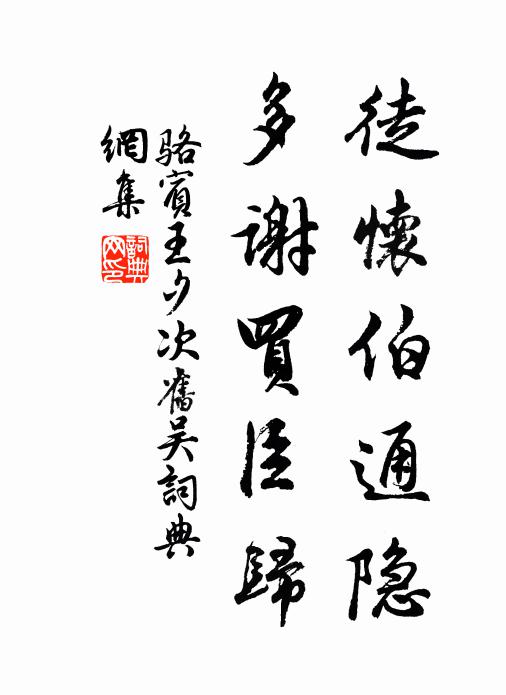 徒懷伯通隐
多謝買臣歸
骆賓王夕次舊吴詞典
網集
詞典网印